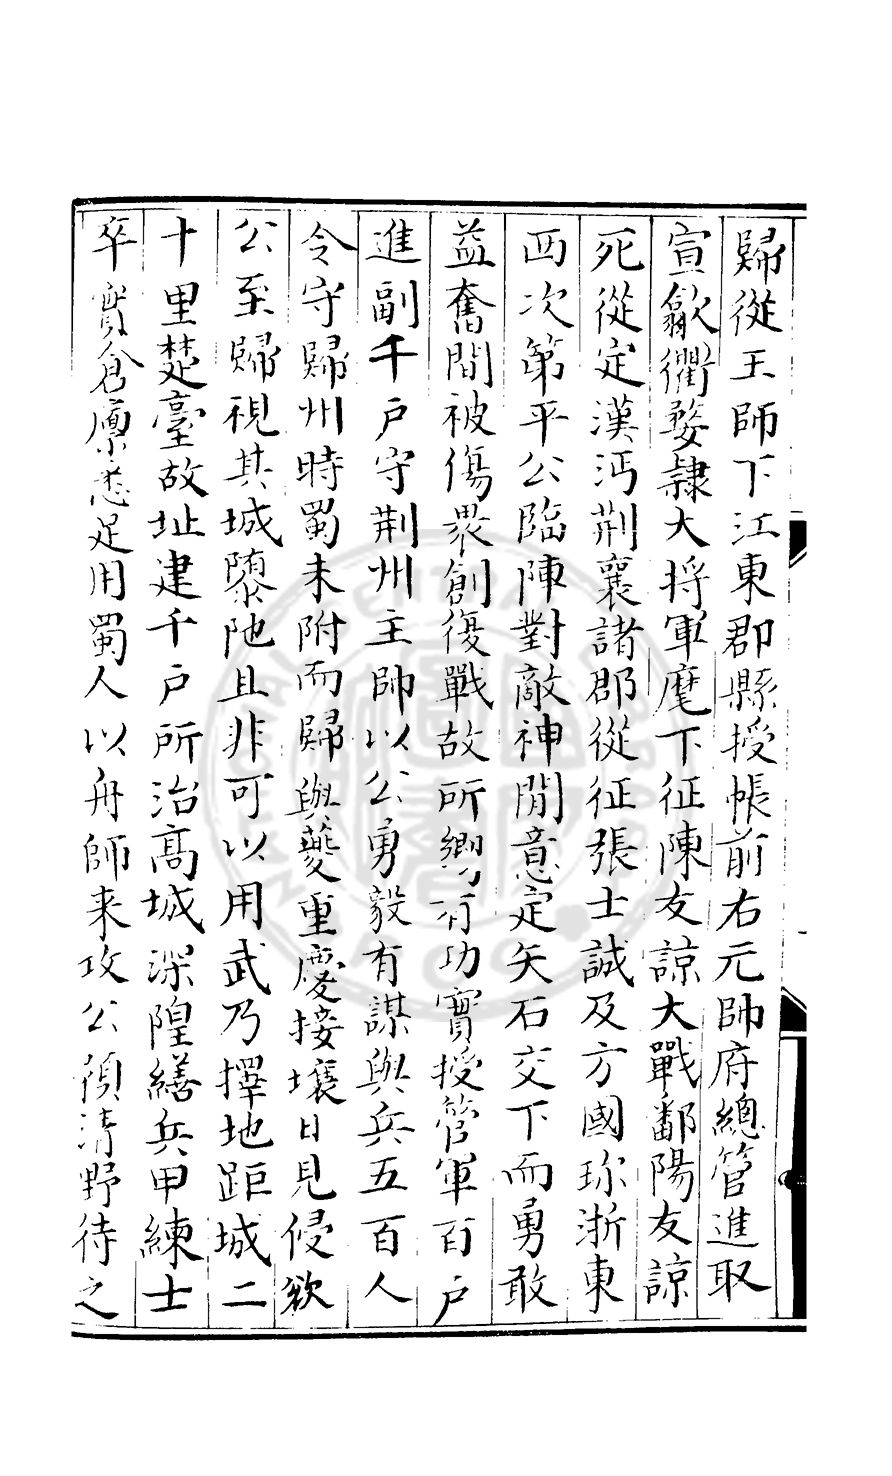 歸從王師下江東郡縣授帳前右元帥府總管進取
宣歙衢婺隷大將軍麾下征陳友諒大戰鄱陽友諒
死從定漢沔荆襄諸郡從征張士誠及方國珎浙東
西次第平公臨陣對敵神閒意定矢石交下而勇敢
益奮間被傷褁創復戰故所嚮有功實授管軍百户
進副千户守荆州主帥以公勇毅有謀與兵五百人
令守歸州時蜀未附而歸與夔重慶接壤日見侵欲
公至歸視其城隳阤且非可以用武乃擇地距城二
十里楚臺故址建千户所治髙城深隍繕兵甲練士
卒實倉廪悉足用蜀人以舟師来攻公預清野待之